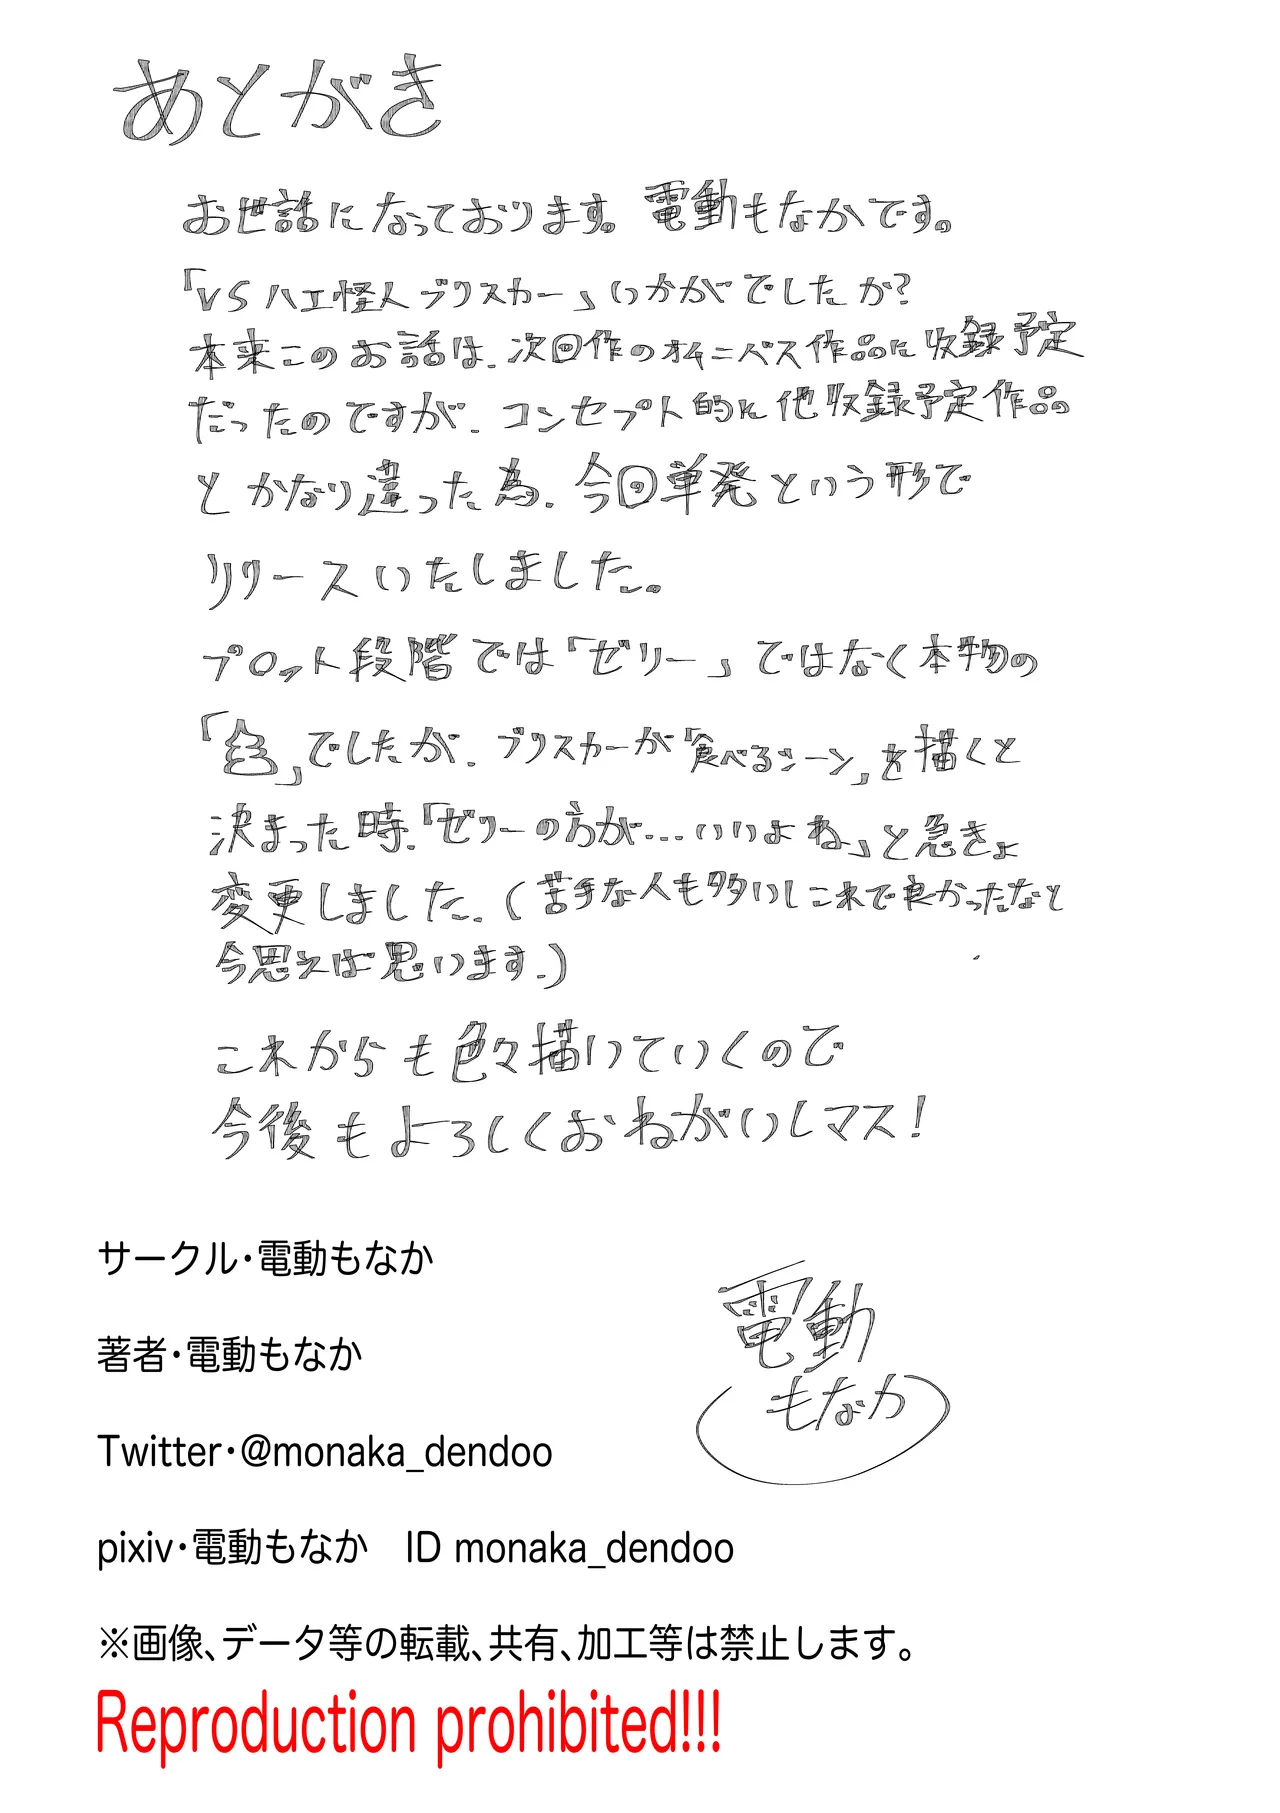 あとがき
お世話になっております。電動もなかです。
「VSハエ怪人ブリスカー」いかがでしたか?
本来このお話は、次回作のオムニバス作品に収録予定
だったのですが、コンセプト的に他収録予定作品
とかなり違った為、今回単発という形で
リリースいたしました。
プロット段階では「ゼリー」ではなく本物の
「」でしたが、ブリスカーが「食べるシーン」を描くと
決まった時、「ゼリーの方が…いいよね」と急きょ
変更しました。(苦手な人も多いしこれで良かったなと
今思えば思います。)
これからも色々描いていくので
今後もよろしくおねがいしマス!
サークル・電動もなか
著者・電動もなか
電動
もなか
Twitter・@monaka_dendoo
pixiv・電動もなか ID monaka_dendoo
※画像、データ等の転載、共有、加工等は禁止します。
Reproduction prohibited!!!